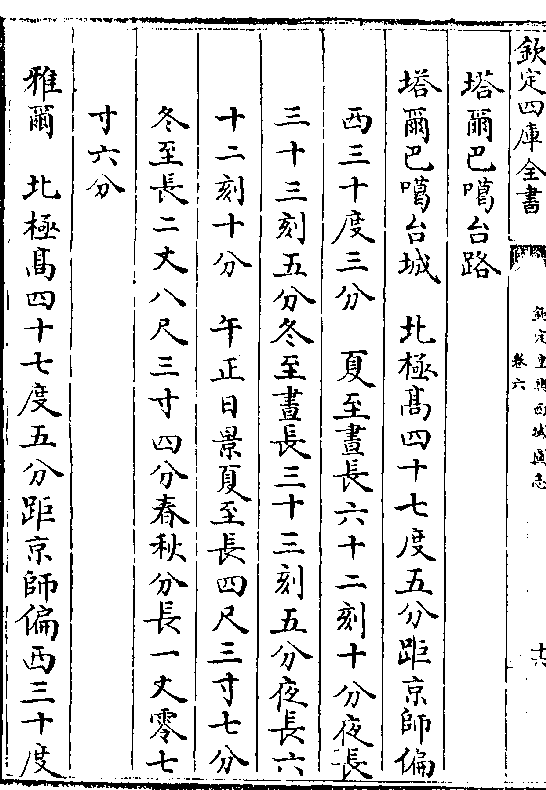 欽定四庫全書
欽定皇輿西域圖志
卷六
十六
塔爾巴噶台路
塔爾巴噶台城　北極髙四十七度五分距京師偏
西三十度三分　夏至晝長六十二刻十分夜長
三十三刻五分冬至晝長三十三刻五分夜長六
十二刻十分　午正日景夏至長四尺三寸七分
冬至長二丈八尺三寸四分春秋分長一丈零七
寸六分
雅爾　北極髙四十七度五分距京師偏西三十度